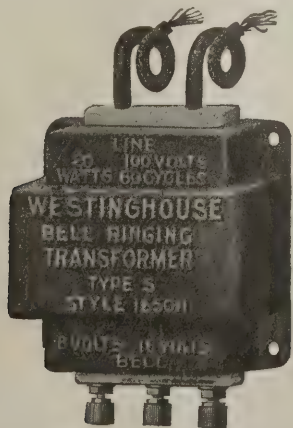 LINE
20 100 VOLTS
WATTS 60 CYCLES
WESTINGHOUSE
BELL RINGING
TRANSFORMER
TYPE S
STYLE
8 VOLTS WATTS
BELL